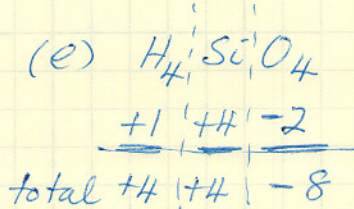 (e) H4 Si O4
+1 +4 -2
total +4 +4 -8